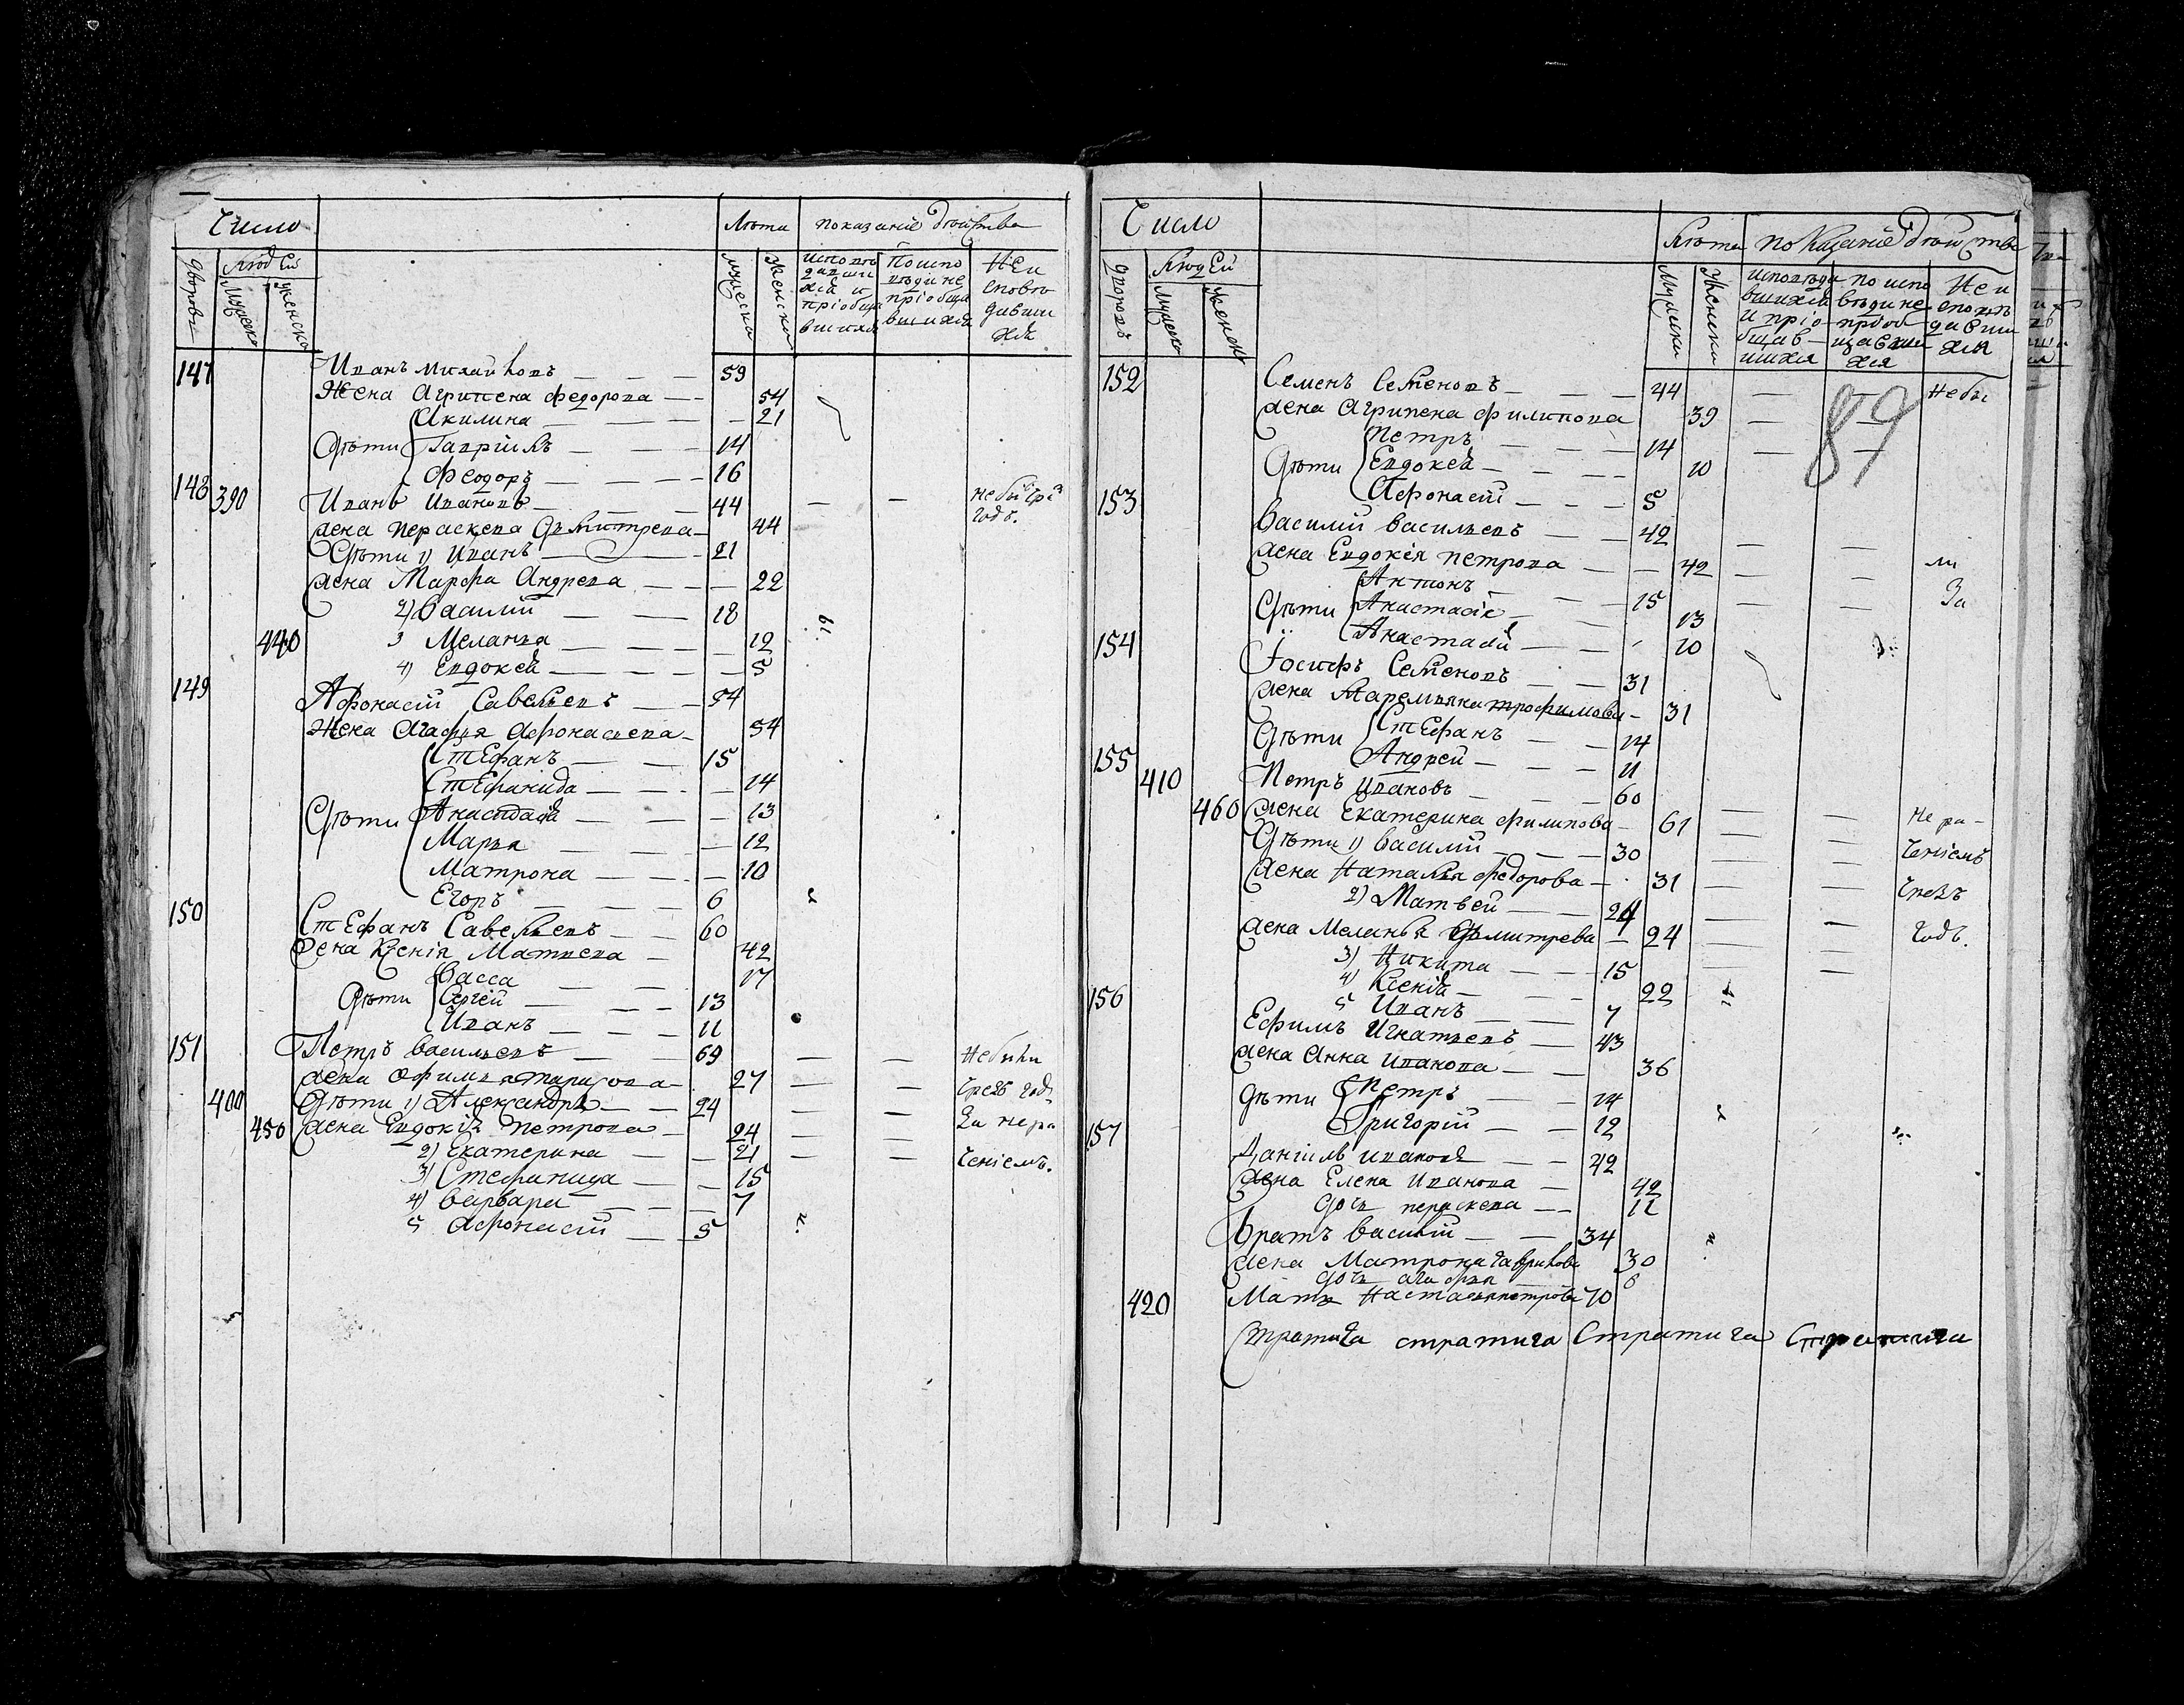 Число
Лѣта показаніе дѣйства
дворовъ
Людей
мужеска
женска
мужеска
женска
исповѣдавшихся и пріобщавшихся
По исповѣди не пріобщавшихся
Не исповѣдавшихся
147 Иванъ Михайловъ 59
Жена Агрипена Федорова 54
Акилина 21
дѣти Гаврiилъ 14
Феодоръ 16
148 390 Иванъ Ивановъ 44
жена Пераскева Дьмитрева 44
Дѣти 1) Иванъ 21
жена Марфа Андрева 22
2) Василий 18
440 3 Меланья 12
4) Евдокея 5
149 Афонасій Савельевъ 54
Жена Агафья Афонасьева 54
Стефанъ 15
Стефанида 14
Дѣти Анастасия 13
Марья 12
Матрона 10
Егоръ 6
150 Стефанъ Савельевъ 60
Жена Ксенія Матвева 42
Васса 17
Дѣти Сергей 13
Иванъ 11
151 Петръ Васильевъ 69 Небыли
жена Офимья 27 чрезъ годъ
400 Дѣти 1) Александръ 24 За нера
450 жена Евдокія Петрова 24 ченіемъ.
2) Екатерина 21
3) Стефанида 15
4) Варвара 7
5 Афонасій 5
Число
Лѣта показаніе дѣйства
дворовъ
Людей
мужеска
женска
мужеска
женска
исповѣдавшихся и пріобщавшихся
по исповѣди не пріобщавшихся
Не исповѣдавшихся
89
152 Семенъ Семеновъ 44 Небы
жена Агрипена Филипова 39
Петръ 14
Дѣти Евдокея 10
Афонасій 5
153 Василий Васильевъ 42
жена Евдокія Петрова 42 ли
Антонъ 15 За
Дѣти Анастасія 13
Анастасия 10
154 Іосифъ Семеновъ 31
жена Маремьяна трофимова 31
Дѣти Стефанъ 14
Андрей 11
155 410 Петръ Ивановъ 60
460 жена Екатерина Филипова 61 Нера-
Дѣти 1) Василий 30 ченіемъ
жена Наталья Федорова 31 чрезъ
2) Матвей 24
жена Меланья Дьмитрева 24 годъ.
3) Никита 15
4) Ксенія 22
5 Иванъ 7
156 Ефимъ Игнатьевъ 43
жена Анна Иванова 36
дѣти Петръ 14
Григорій 12
157 Данiилъ Ивановъ 42
жена Елена Иванова 42
дочь пераскева 11
Братъ Василій 34
жена Матрона Гаврилова 30
дочь агафья 8
420 Мать Настасья петрова 70
Стратига стратига Стратига Стратига